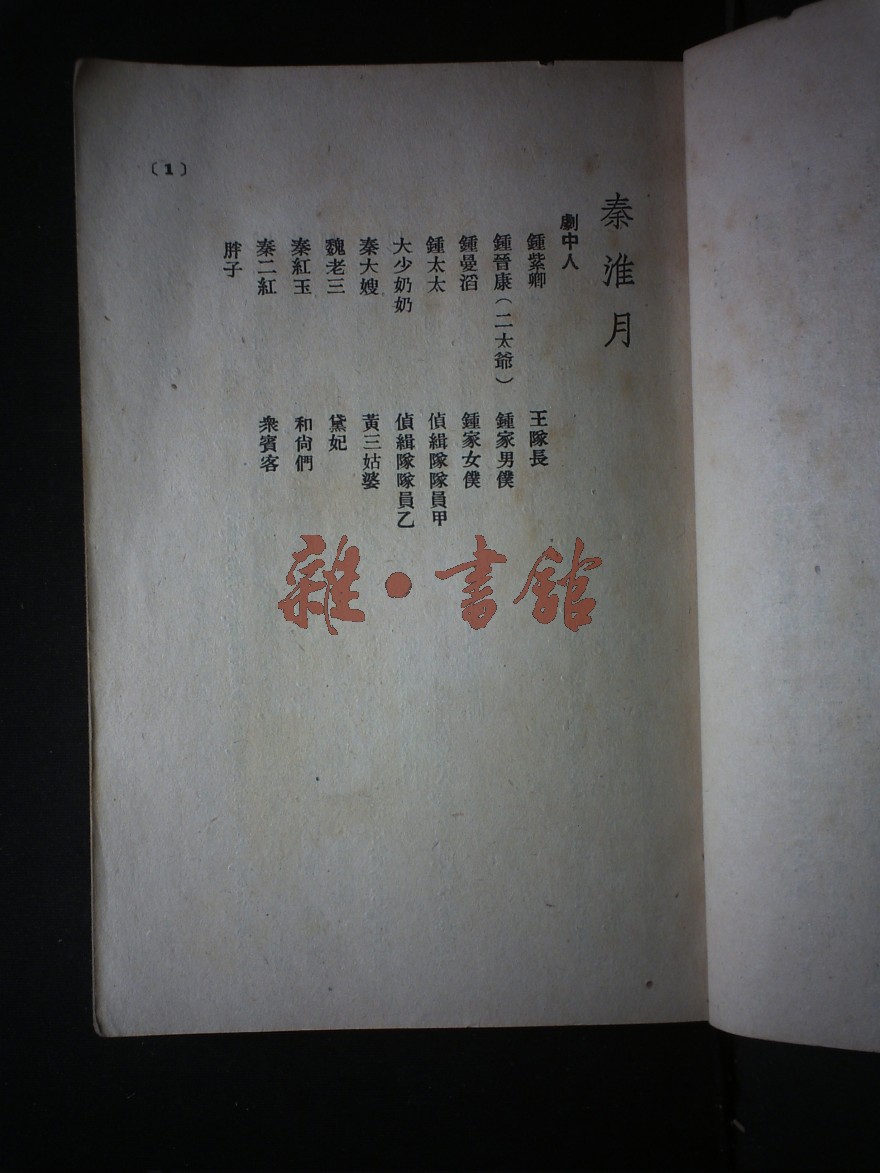 秦淮月
劇中人
鍾紫卿
鍾晉康(二太爺)
鍾曼滔
鍾太太
大少奶奶
秦大嫂
魏老三
秦紅玉
秦二紅
胖子
王隊長
鍾家男僕
鍾家女僕
偵緝隊隊員甲
偵緝隊隊員乙
黃三姑婆
黛妃
和尙們
衆賓客
〔1〕
雜·書館